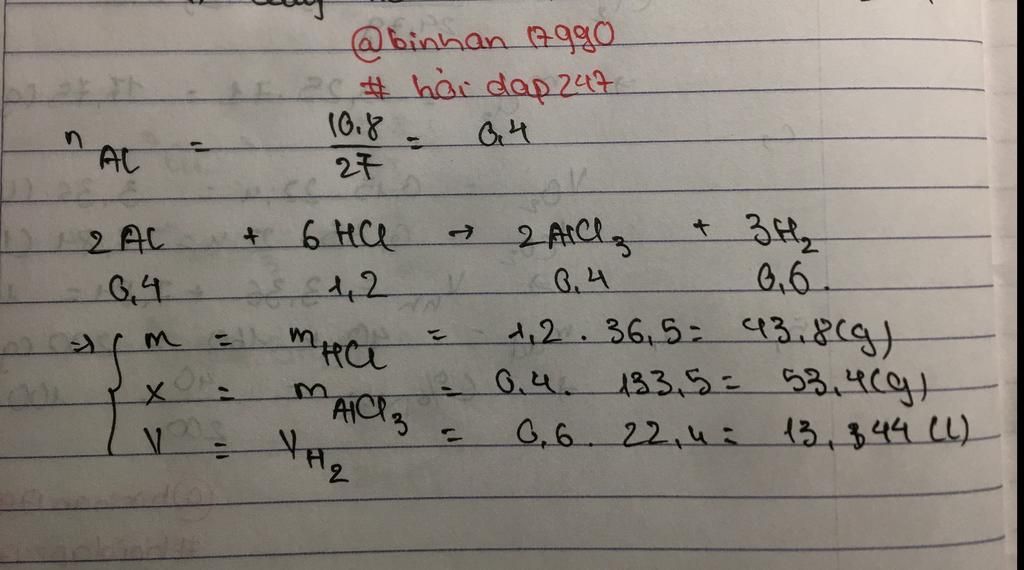 @binhan 17990
# hỏi dap 247
n Al = 10.8 / 27 = 0,4
2Al + 6HCl → 2AlCl3 + 3H2
0,4 1,2 0,4 0,6.
⇒ { m = mHCl = 1,2 . 36,5 = 43,8(g)
x = mAlCl3 = 0,4. 133,5 = 53,4(g)
V = VH2 = 0,6. 22,4 = 13,344 (l)